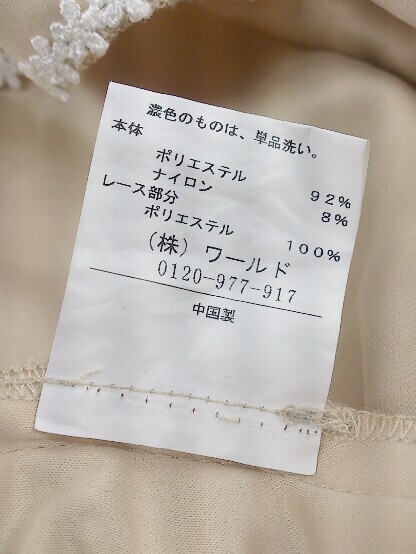 濃色のものは、単品洗い。
本体
ポリエステル 92%
ナイロン 8%
レース部分
ポリエステル 100%
(株) ワールド
0120-977-917
中国製